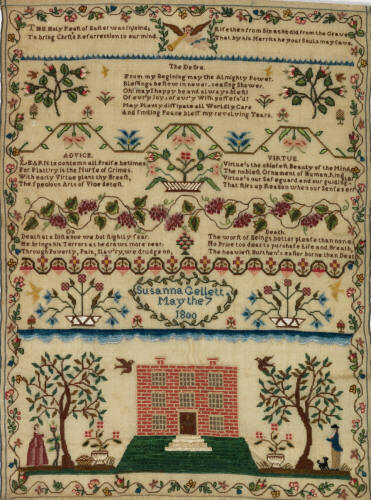 THE Holy Feast of Easter was injoind,
To bring Christs Resurrection to our mind.
Rise then from Sin as he did from the Grave
That by his Merrits he your Souls may save.
The Desire.
From my Begining may the Almighty Power.
Blessings bestow in never-ceasing Shower.
Oh! may I happy be and always blest!
Of ev'ry Joy, of ev'ry Wish possess'd!
May Plenty dissipate all Worldly Care
And smiling Peace bless my revolving Years.
ADVICE.
LEARN to contemn all Praise betimes
For Flattry is the Nurse of Crimes.
With early Virtue plant thy Breast,
The specious Arts of Vice detest.
VIRTUE.
Virtue's the chiefest Beauty of the Mind
The noblest Ornament of Human Kind
Virtue's our safeguard and our guiding
That stirs up Reason when our Senses err
Death at a Distance we but slightly fear.
He brings his Terrors as he draws more near:
Through Poverty, Pain, Slav'ry, we drudge on,
Death.
The worst of Beings better please than none
No Price too dear to purchase Life and Breath
The heaviest Burthen's easier borne than Death
Susanna Gellett
May the 7
1800